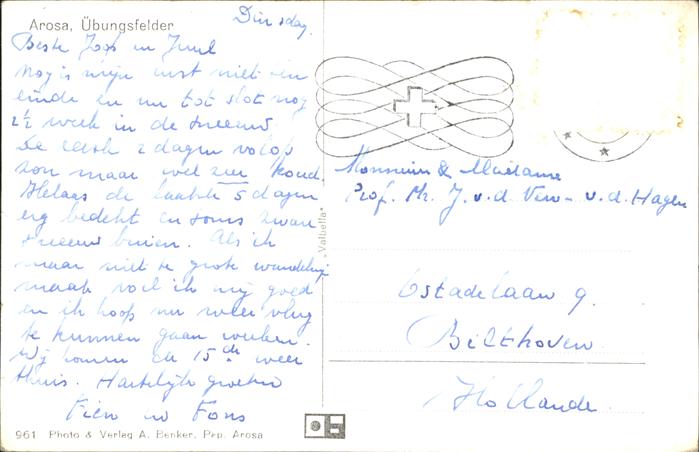 Arosa, Übungsfelder
Dinsdag.
Beste Joop en Juul
Nog is mijn rust niet ten
einde en nu tot slot nog
2½ week in de sneeuw.
De eerste 2 dagen volop
zon maar wel zeer koud
Helaas de laatste 5 dagen
erg bedekt en soms zware
sneeuw buien. Als ik
maar niet te grote wandeling
maak voel ik mij goed
en ik hoop nu weer vlug
te kunnen gaan werken.
Wij komen ca 15de weer
thuis. Hartelijke groeten
Fien en Fons
961 Photo & Verlag A. Benker, Pap. Arosa
"Valbella"
Monsieur & Madame
Prof. Mr. J. v. d. Ven - v. d. Hagen
Estadelaan 9.
Bilthoven
Hollande